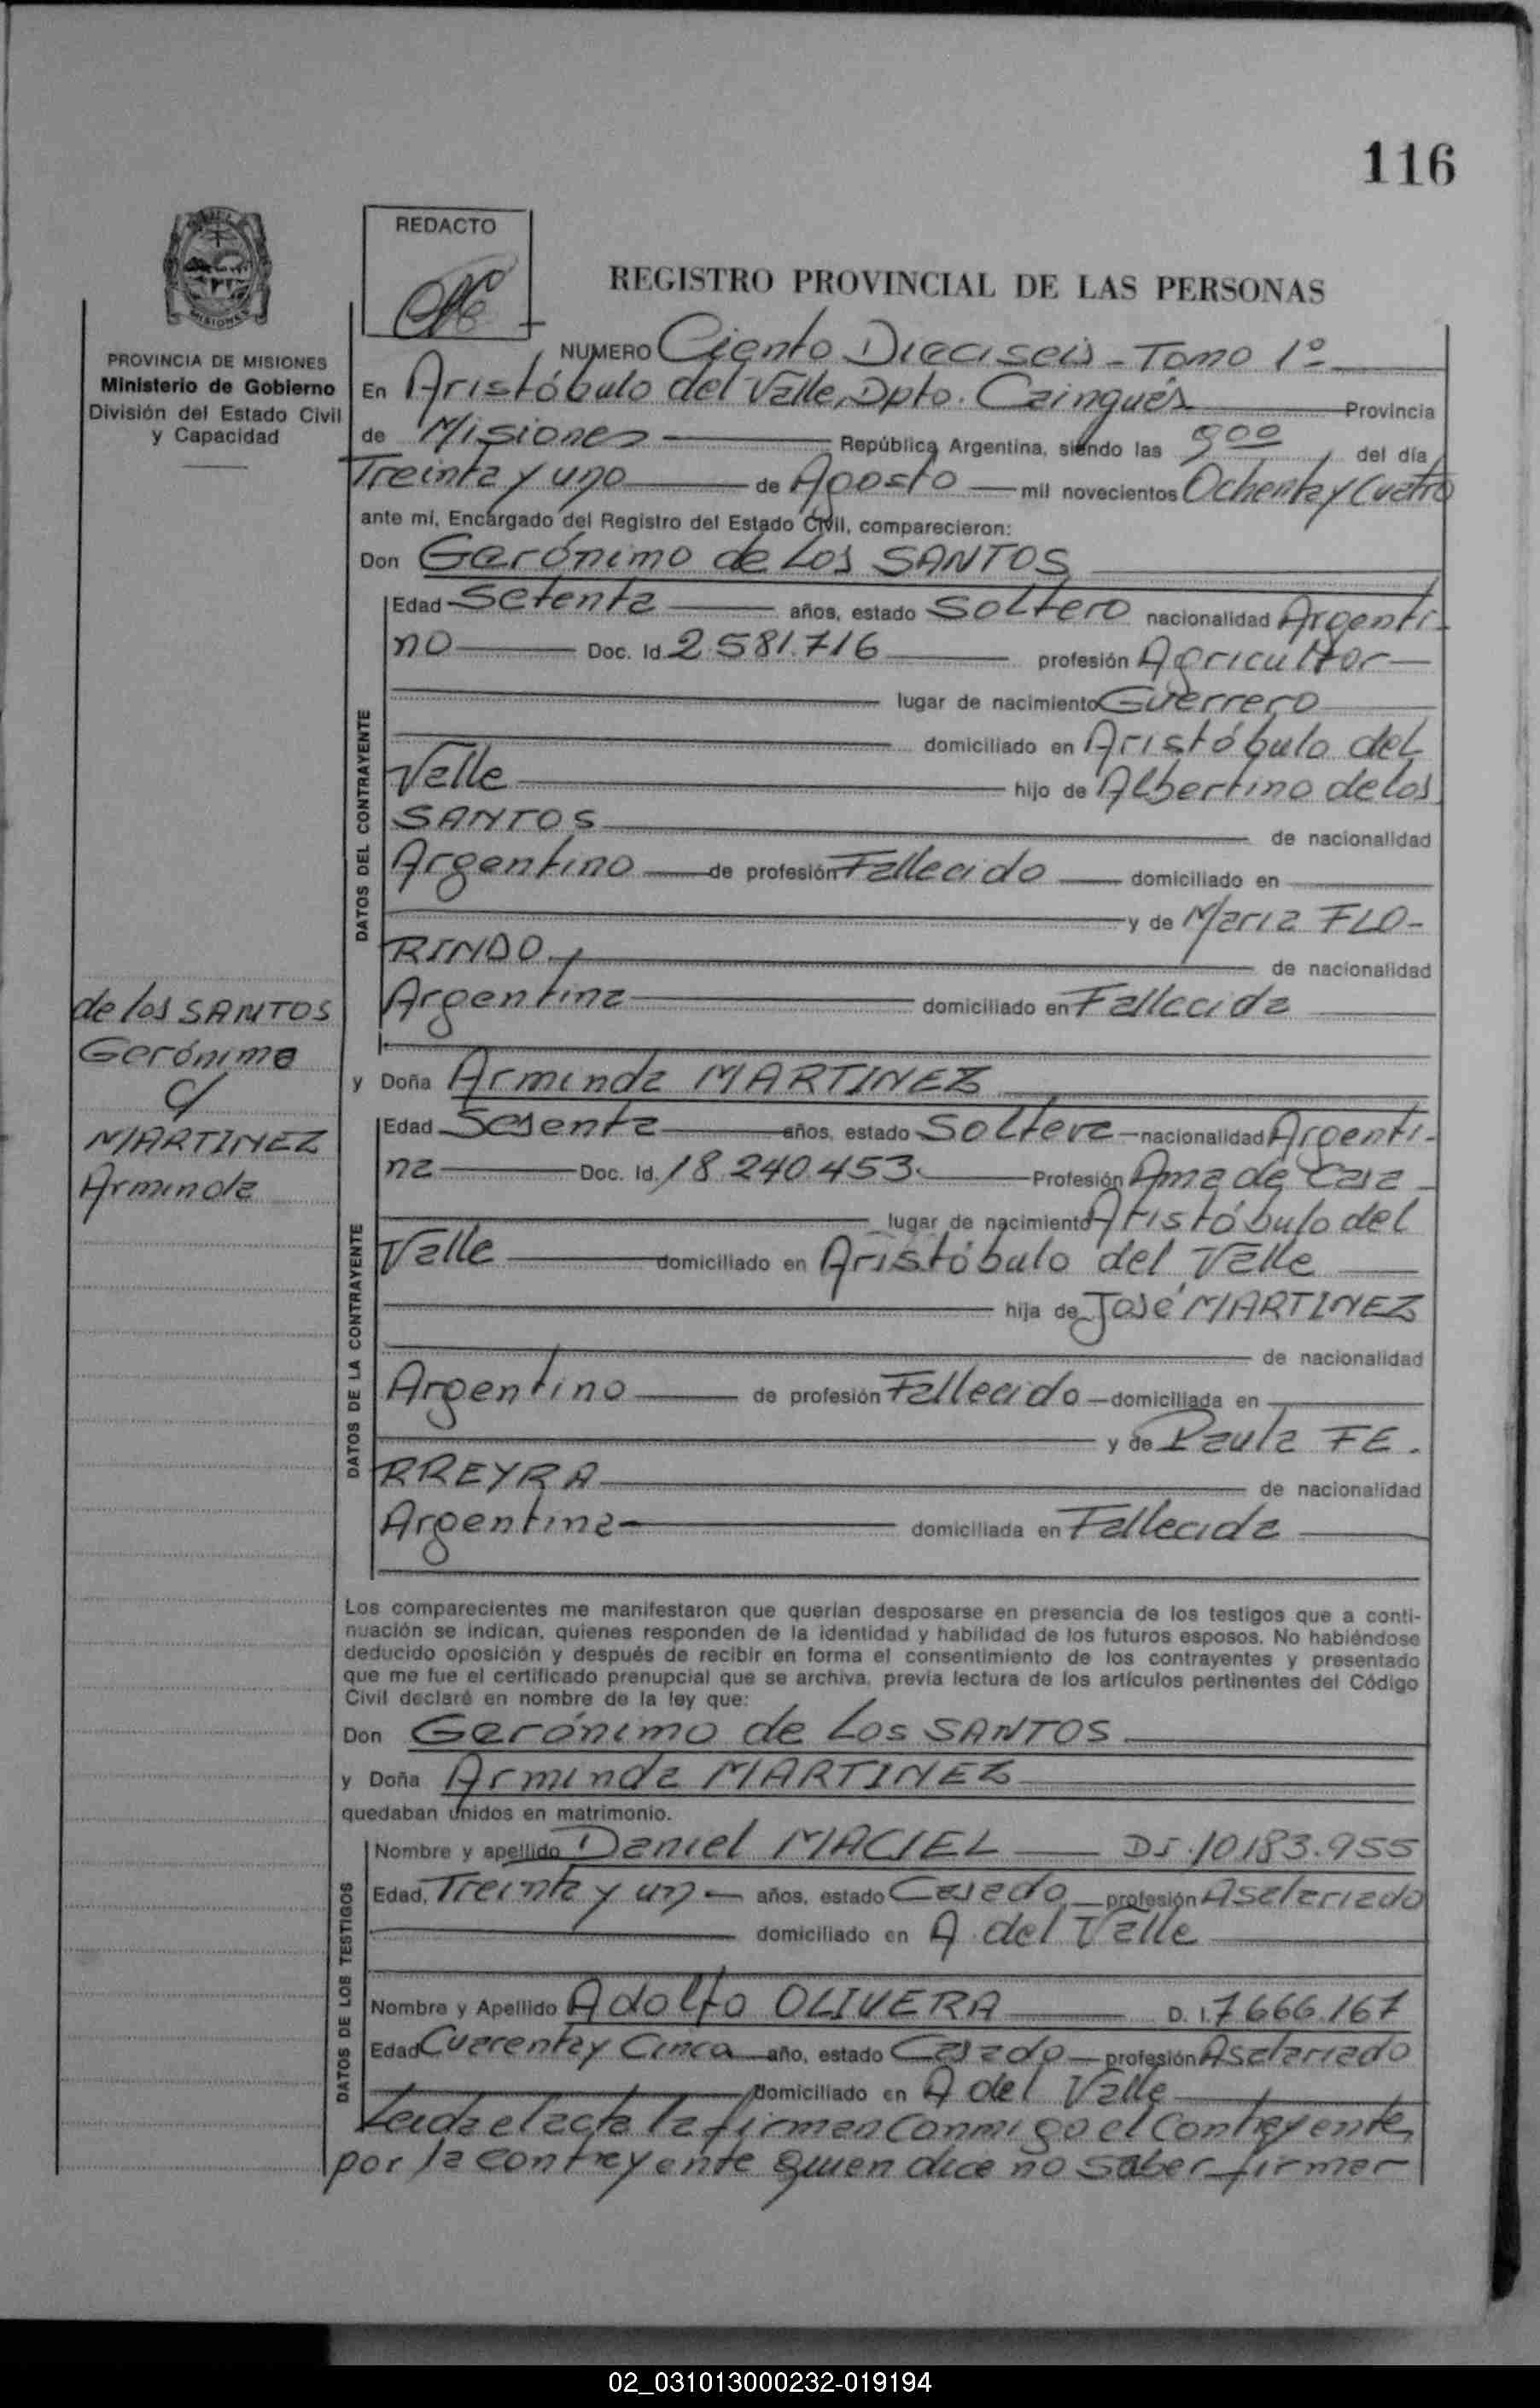 116
REDACTO
REGISTRO PROVINCIAL DE LAS PERSONAS
MISIONES
PROVINCIA DE MISIONES
Ministerio de Gobierno
División del Estado Civil
y Capacidad
NUMERO Ciento Dieciseis - Tomo 1º
En Aristóbulo del Valle, Dpto. Cainguás Provincia
de Misiones República Argentina, siendo las 9 00 del día
Treinta y uno de Agosto mil novecientos Ochenta y Cuatro
ante mi, Encargado del Registro del Estado Civil, comparecieron:
Don Gerónimo de Los SANTOS
DATOS DEL CONTRAYENTE
Edad Setenta años, estado Soltero nacionalidad Argenti-
no Doc. Id. 2.581.716 profesión Agricultor
lugar de nacimiento Guerrero
domiciliado en Aristóbulo del
Valle hijo de Albertino de los
SANTOS de nacionalidad
Argentino de profesión Fallecido domiciliado en
y de María FLO-
RINDO de nacionalidad
Argentina domiciliado en Fallecida
de los SANTOS
Gerónimo
c/
MARTINEZ
Arminda
y Doña Arminda MARTINEZ
DATOS DE LA CONTRAYENTE
Edad Sesenta años, estado Soltera nacionalidad Argenti-
na Doc. Id. 18.240.453. Profesión Ama de Casa
lugar de nacimiento Aristóbulo del
Valle domiciliado en Aristóbulo del Valle
hija de José MARTINEZ
de nacionalidad
Argentino de profesión Fallecido domiciliada en
y de Paula FE.
RREYRA de nacionalidad
Argentina domiciliada en Fallecida
Los comparecientes me manifestaron que querían desposarse en presencia de los testigos que a conti-
nuación se indican, quienes responden de la identidad y habilidad de los futuros esposos. No habiéndose
deducido oposición y después de recibir en forma el consentimiento de los contrayentes y presentado
que me fue el certificado prenupcial que se archiva, previa lectura de los artículos pertinentes del Código
Civil declaré en nombre de la ley que:
Don Gerónimo de Los SANTOS
y Doña Arminda MARTINEZ
quedaban unidos en matrimonio.
DATOS DE LOS TESTIGOS
Nombre y apellido Daniel MACIEL DI. 10.183.955
Edad, Treinta y un años, estado Casado profesión Asalariado
domiciliado en A. del Valle
Nombre y Apellido Adolfo OLIVERA D. I. 7.666.167
Edad Cuarenta y Cinco año, estado Casado profesión Asalariado
domiciliado en A del Valle
Leida el acta la firman conmigo el contrayente,
por la contrayente quien dice no saber firmar
02_031013000232-019194